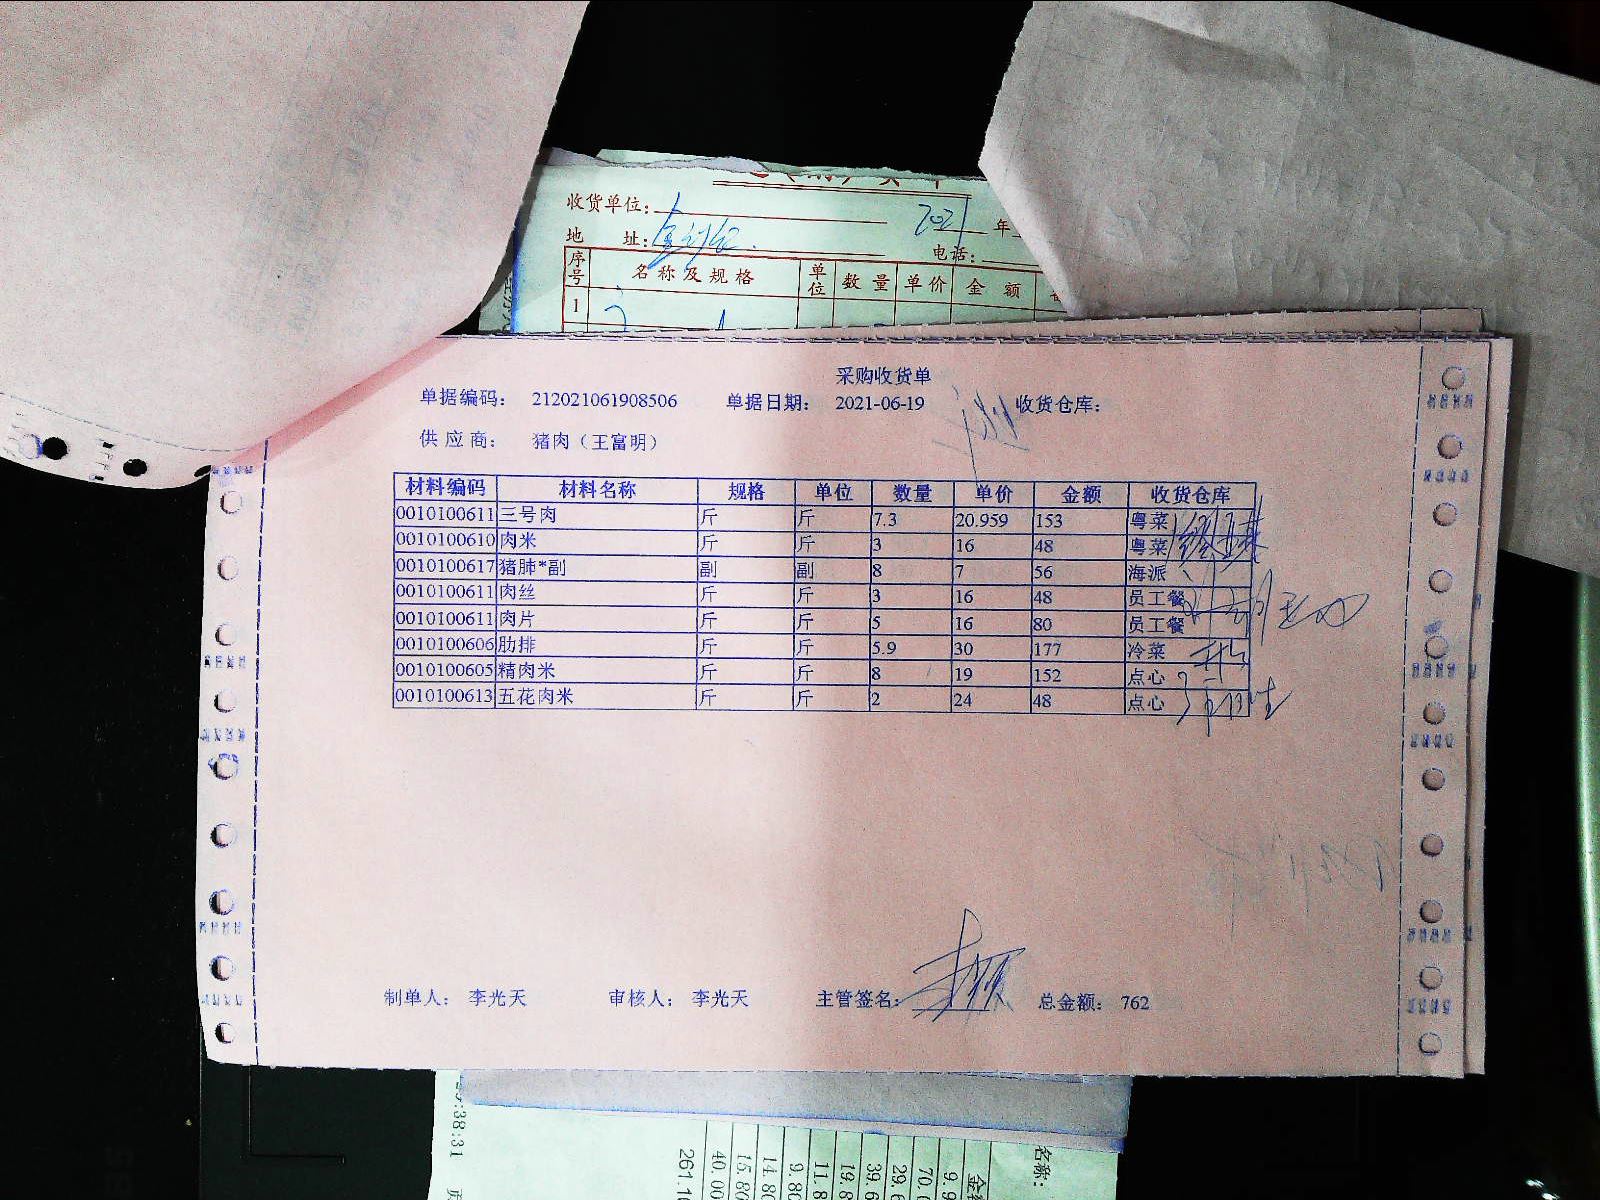 收货单位:
2021 年
地 址:
电话:
序号 名称及规格 单位 数量 单价 金额
1
采购收货单
单据编码: 212021061908506 单据日期: 2021-06-19 收货仓库:
供应商: 猪肉（王富明）
材料编码 材料名称 规格 单位 数量 单价 金额 收货仓库
0010100611 三号肉 斤 斤 7.3 20.959 153 粤菜
0010100610 肉米 斤 斤 3 16 48 粤菜
0010100617 猪肺*副 副 副 8 7 56 海派
0010100611 肉丝 斤 斤 3 16 48 员工餐
0010100611 肉片 斤 斤 5 16 80 员工餐
0010100606 肋排 斤 斤 5.9 30 177 冷菜
0010100605 精肉米 斤 斤 8 19 152 点心
0010100613 五花肉米 斤 斤 2 24 48 点心
制单人: 李光天 审核人: 李光天 主管签名: 总金额: 762
:38:31
261.1
40.00
15.80
14.80
9.80
11.8
19.8
39.6
29.6
70.0
9.9
名称: